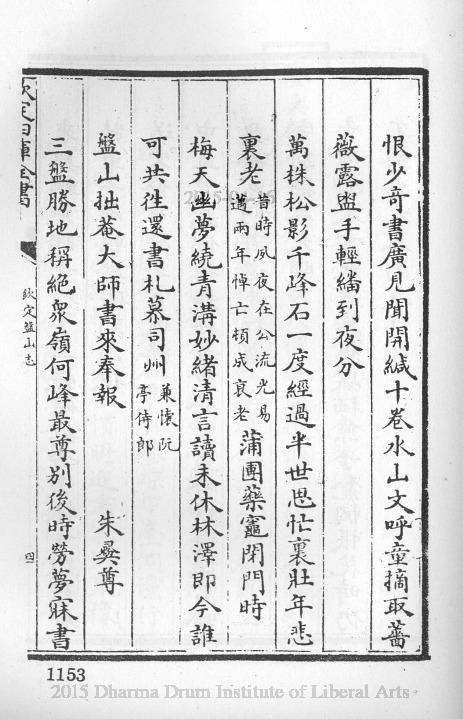 恨少奇書廣見聞開緘十卷水山文呼童摘取薔
薇露盥手輕繙到夜分
萬株松影千峰石一度經過半世思忙裏壯年悲
裏老昔時夙夜在公流光易邁兩年悼亡頓成衰老蒲團藥竈閉門時
梅天幽夢繞青溝妙緒清言讀未休林澤即今誰
可共往還書札慕司州兼懷阮亭侍郎
盤山拙菴大師書來奉報 朱彝尊
三盤勝地稱絶衆嶺何峰最尊别後時勞夢寐書
欽定四庫全書
欽定盤山志
四
1153
2015 Dharma Drum Institute of Liberal Arts